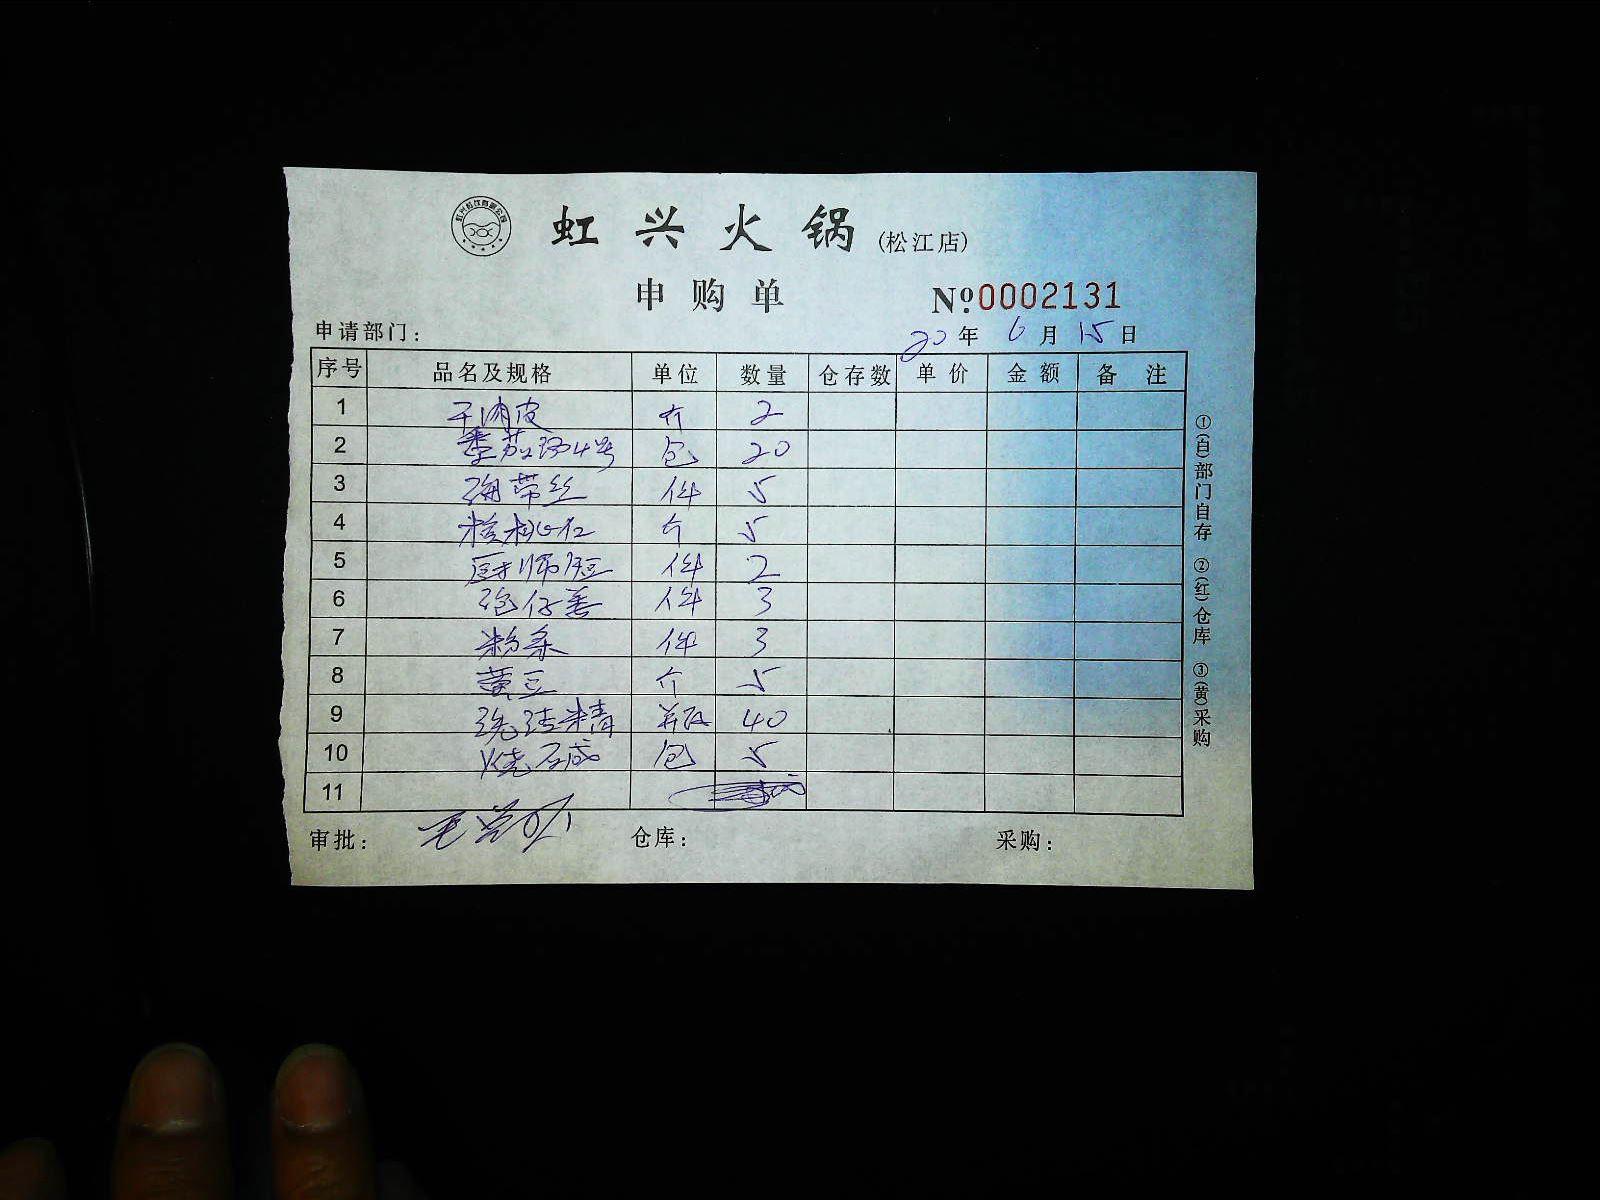 虹兴火锅 (松江店)
申购单 Nº0002131
申请部门: 20年 6月 15日
序号 品名及规格 单位 数量 仓存数 单价 金额 备注
1 干肉皮 2
2 番茄 4号 包 20
3 海带丝 件 5
4 核桃仁 5
5 厨师 件 2
6 件 3
7 粉条 件 3
8 黄豆 5
9 洗洁精 瓶 40
10 烧碱 包 5
11
审批: 仓库: 采购:
①(白)部门自存 ②(红)仓库 ③(黄)采购